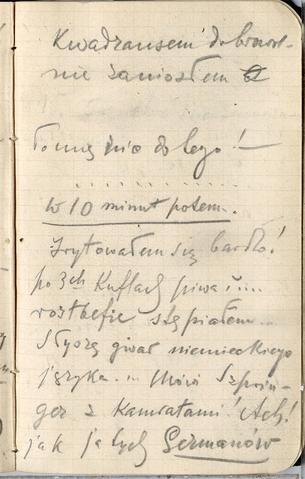 Kwadransem dobrowol-
nie zaniosłem
To mię nie do tego! —
. . . . . . . . . . . .
w 10 minut potem.
Irytowałem się bardzo!
po 3ch Kuflach piwa i...
rostbefie stępiałem...
Słyszę gwar niemieckiego
języka... Mówi Szprin-
ger z Kamratami! Ach!
jak ja tych Germanów